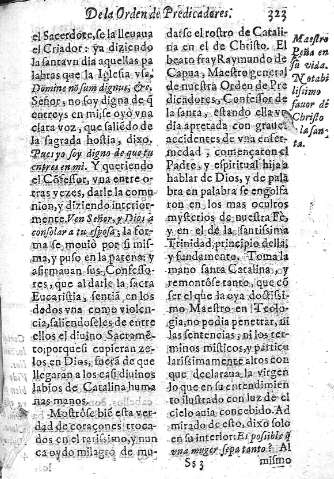 De la Orden de Predicadores. 323
el Sacerdote, se la lleuaua
el Criador: ya diziendo
la santa vn dia aquellas pa
labras que la Iglesia vsa,
Domine nõ sum dignus, &c,
Señor, no soy digna de q̃
entreys en mi, se oyò vna
clara voz, que saliẽdo de
la sagrada hostia, dixo,
Pues yo soy digno de que tu
entres en mi. Y queriendo
el Cõfessor, vna entre o-
tras vezes, darle la comu
nion, y diziendo interior-
mente. Ven Señor, y Dios a
consolar a tu esposa; la for-
ma se mouiò por si mis-
ma, y puso en la patena: y
afirmauan sus Confesso-
res, que al darle la sacra
Eucaristia, sentiã en los
dedos vna como violen-
cia, saliendoseles de entre
ellos el diuino Sacramẽ-
to, porque si copieran ze-
los en Dios, fuera de que
llegaran a los casi diuinos
labios de Catalina huma
nas manos.
Mostròse biẽ esta ver-
dad de coraçones troca-
dos en el rarissimo, y nun
ca oydo milagro de mu-
darse el rostro de Catali-
na en el de Christo. El
beato fray Raymundo de
Capua, Maestro general
de nuestra Orden de Pre
dicadores, Confessor de
la santa, estando ella vn
dia apretada con graues
accidentes de vna enfer-
medad, començaron el
Padre, y espiritual hija a
hablar de Dios, y de pala
bra en palabra se engolfa
ron en los mas ocultos
mysterios de nuestra Fè,
y en el de la santissima
Trinidad, principio della,
y fundamento. Toma la
mano santa Catalina, y
remontòse tanto, que cõ
ser el que la oya doctissi-
mo Maestro en Teolo-
gia, no podia penetrar, ni
las sentencias, ni los ter-
minos misticos, y particu
larissimamente altos con
que declaraua la virgen
lo que en su entendimien
to ilustrado con luz de el
cielo auia concebido. Ad
mirado de esto, dixo solo
en su interior: Es possible q̃
vna muger sepa tanto? Al
Ss 3 mismo
Maestro
Peña en
su vida.
Notabi
lissimo
fauor de
Christo
a la san-
ta.